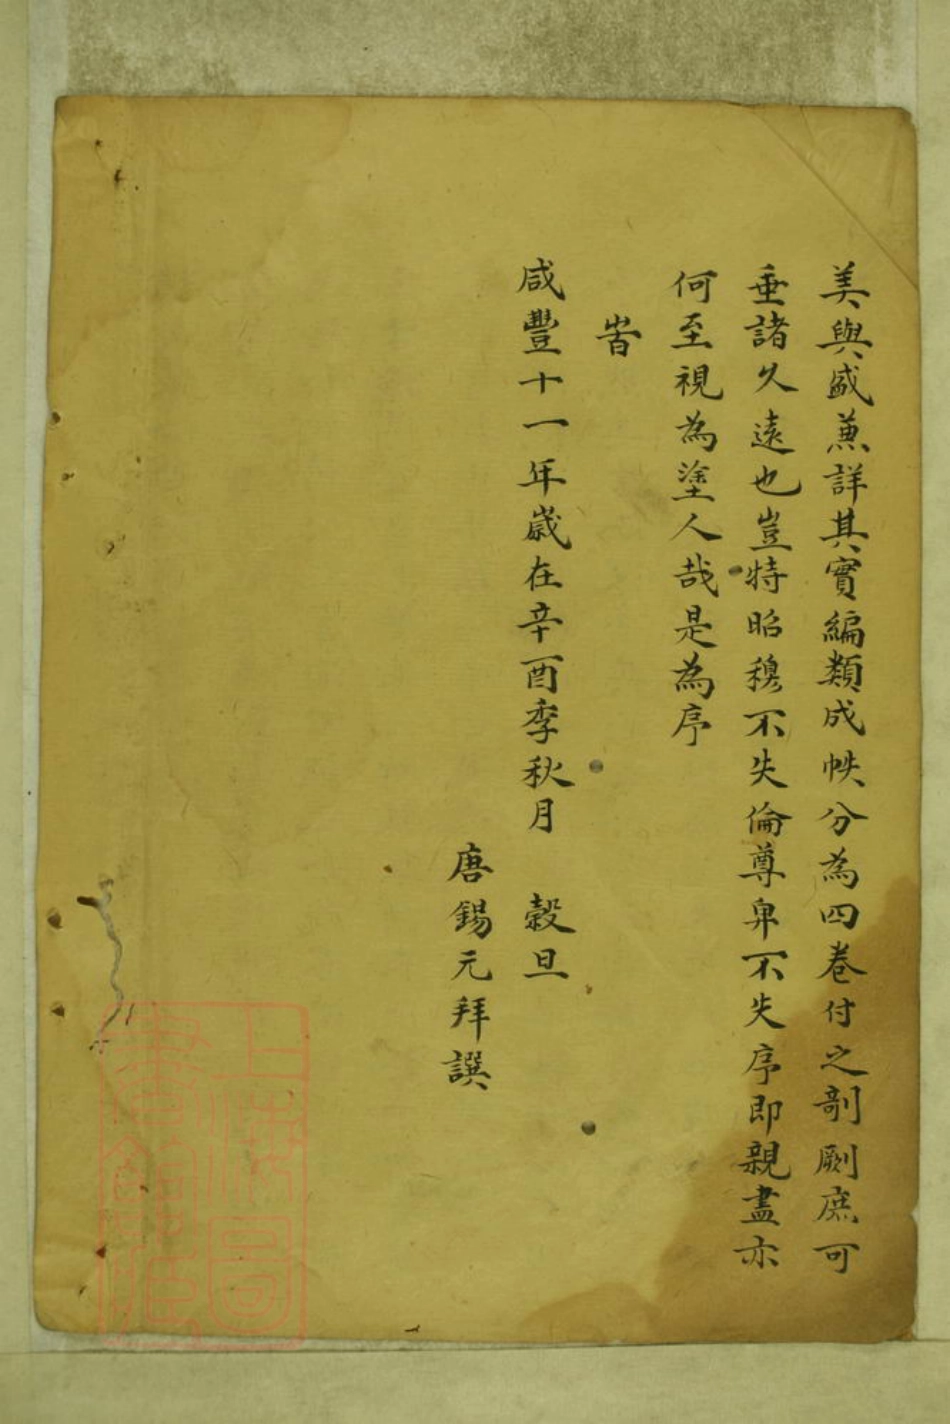 美與盛兼詳其實編類成帙分為四卷付之剞劂庶可
垂諸久遠也豈特昭穆不失倫尊卑不失序即親盡亦
何至視為塗人哉是為序
旹
咸豐十一年歲在辛酉季秋月 穀旦
唐錫元拜譔
上海圖
書館藏